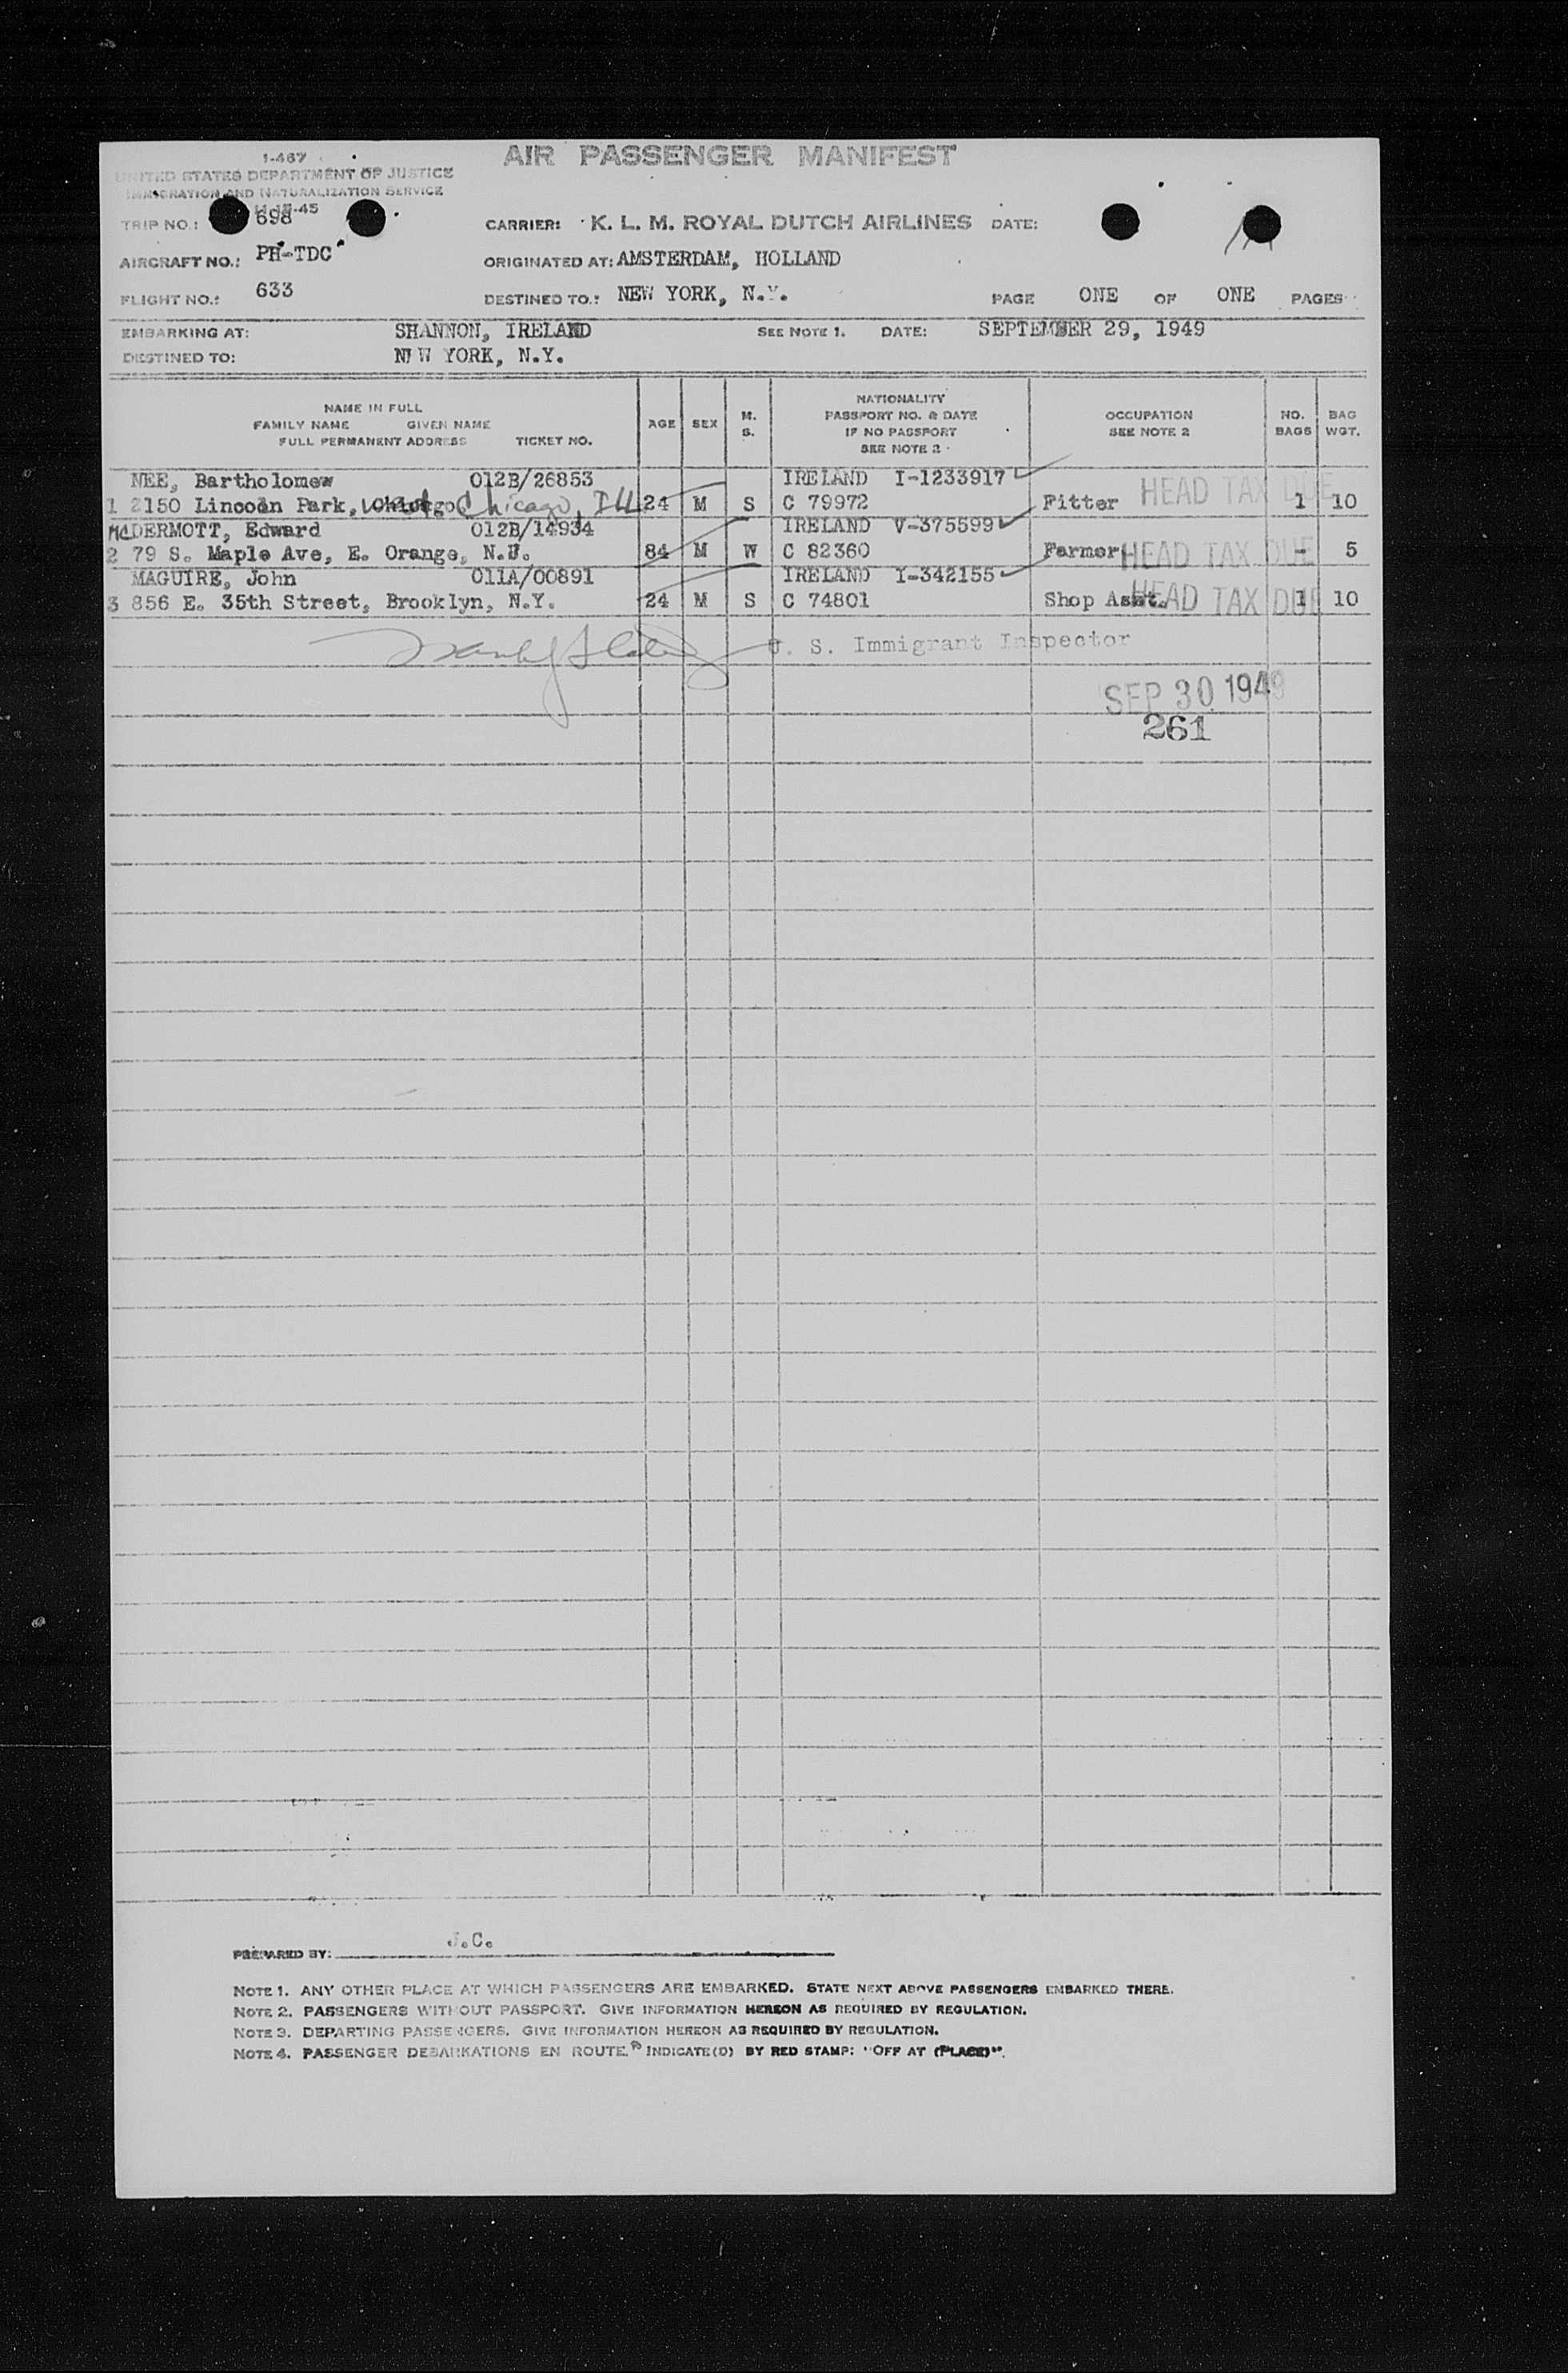 1-467
AIR PASSENGER MANIFEST
UNITED STATES DEPARTMENT OF JUSTICE
IMMIGRATION AND NATURALIZATION SERVICE
TRIP NO.: 698 CARRIER: K. L. M. ROYAL DUTCH AIRLINES DATE:
AIRCRAFT NO.: PH-TDC ORIGINATED AT: AMSTERDAM, HOLLAND
FLIGHT NO.: 633 DESTINED TO.: NEW YORK, N.Y. PAGE ONE OF ONE PAGES
EMBARKING AT: SHANNON, IRELAND SEE NOTE 1. DATE: SEPTEMBER 29, 1949
DESTINED TO: NEW YORK, N.Y.
NAME IN FULL
FAMILY NAME GIVEN NAME
FULL PERMANENT ADDRESS TICKET NO.
AGE
SEX
M. S.
NATIONALITY
PASSPORT NO. & DATE
IF NO PASSPORT
SEE NOTE 2
OCCUPATION
SEE NOTE 2
NO. BAGS
BAG WGT.
NEE, Bartholomew 012B/26853 IRELAND I-1233917
1 2150 Lincoln Park, West Chicago, Ill 24 M S C 79972 Fitter HEAD TAX DUE 1 10
McDERMOTT, Edward 012B/14934 IRELAND V-375599
2 79 S. Maple Ave, E. Orange, N.J. 84 M W C 82360 Farmer HEAD TAX DUE - 5
MAGUIRE, John 011A/00891 IRELAND I-342155
3 856 E. 35th Street, Brooklyn, N.Y. 24 M S C 74801 Shop Asst. HEAD TAX DUE 1 10
U. S. Immigrant Inspector
SEP 30 1949
261
PREPARED BY: J.C.
NOTE 1. ANY OTHER PLACE AT WHICH PASSENGERS ARE EMBARKED. STATE NEXT ABOVE PASSENGERS EMBARKED THERE.
NOTE 2. PASSENGERS WITHOUT PASSPORT. GIVE INFORMATION HEREON AS REQUIRED BY REGULATION.
NOTE 3. DEPARTING PASSENGERS. GIVE INFORMATION HEREON AS REQUIRED BY REGULATION.
NOTE 4. PASSENGER DEBARKATIONS EN ROUTE. INDICATE(D) BY RED STAMP: "OFF AT (PLACE)".